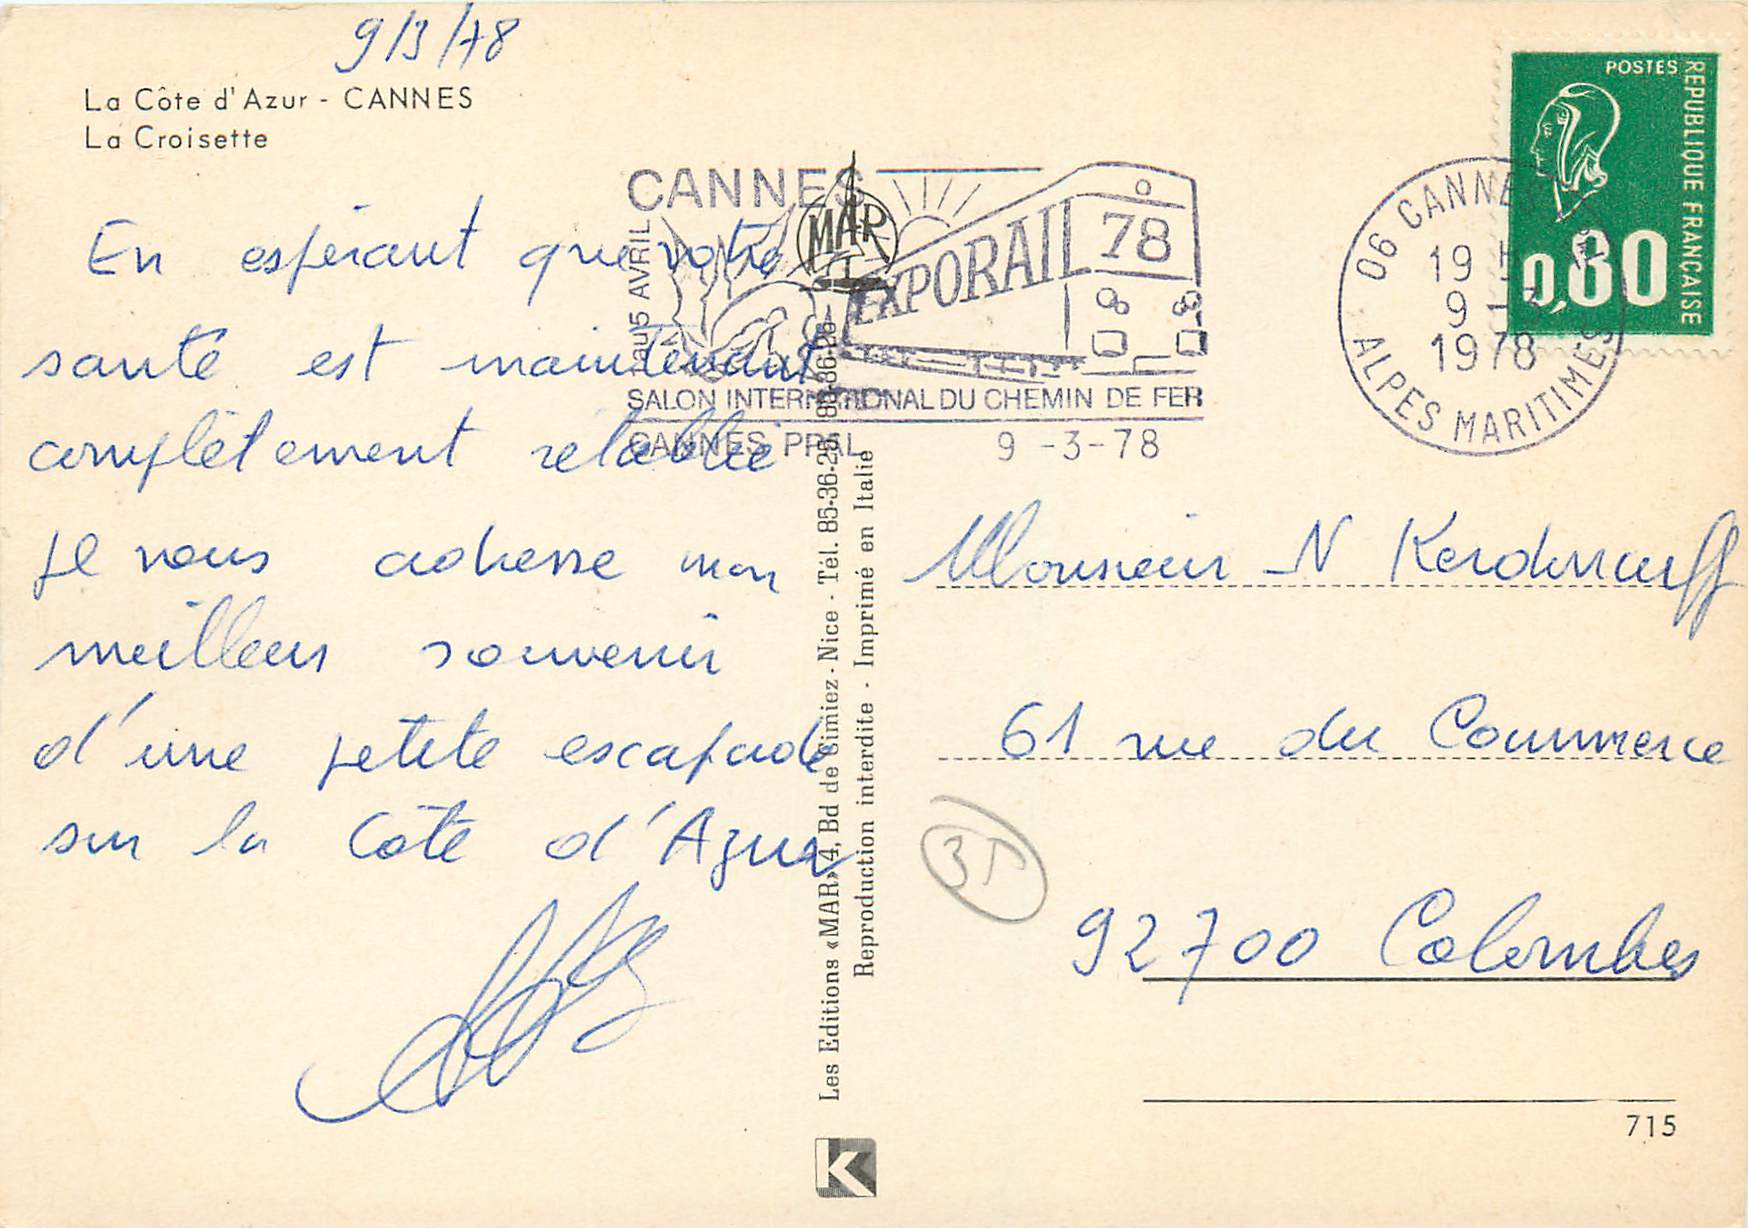 9/3/78
La Côte d'Azur - CANNES
La Croisette
En espérant que votre
santé est maintenant
complètement rétablie
je vous adresse mon
meilleur souvenir
d'une petite escapade
sur la Côte d'Azur
CANNES
AVRIL
MAR
EXPORAIL 78
SALON INTERNATIONAL DU CHEMIN DE FER
CANNES PPAL 9 -3-78
06 CANNES
19 H
9 -3
1978
ALPES MARITIMES
POSTES
REPUBLIQUE FRANÇAISE
0,80
Les Editions «MAR» 4, Bd de Cimiez - Nice - Tél. 85-36-25
Reproduction interdite - Imprimé en Italie
Monsieur N
61 rue du Commerce
35
92700 Colombes
715
K